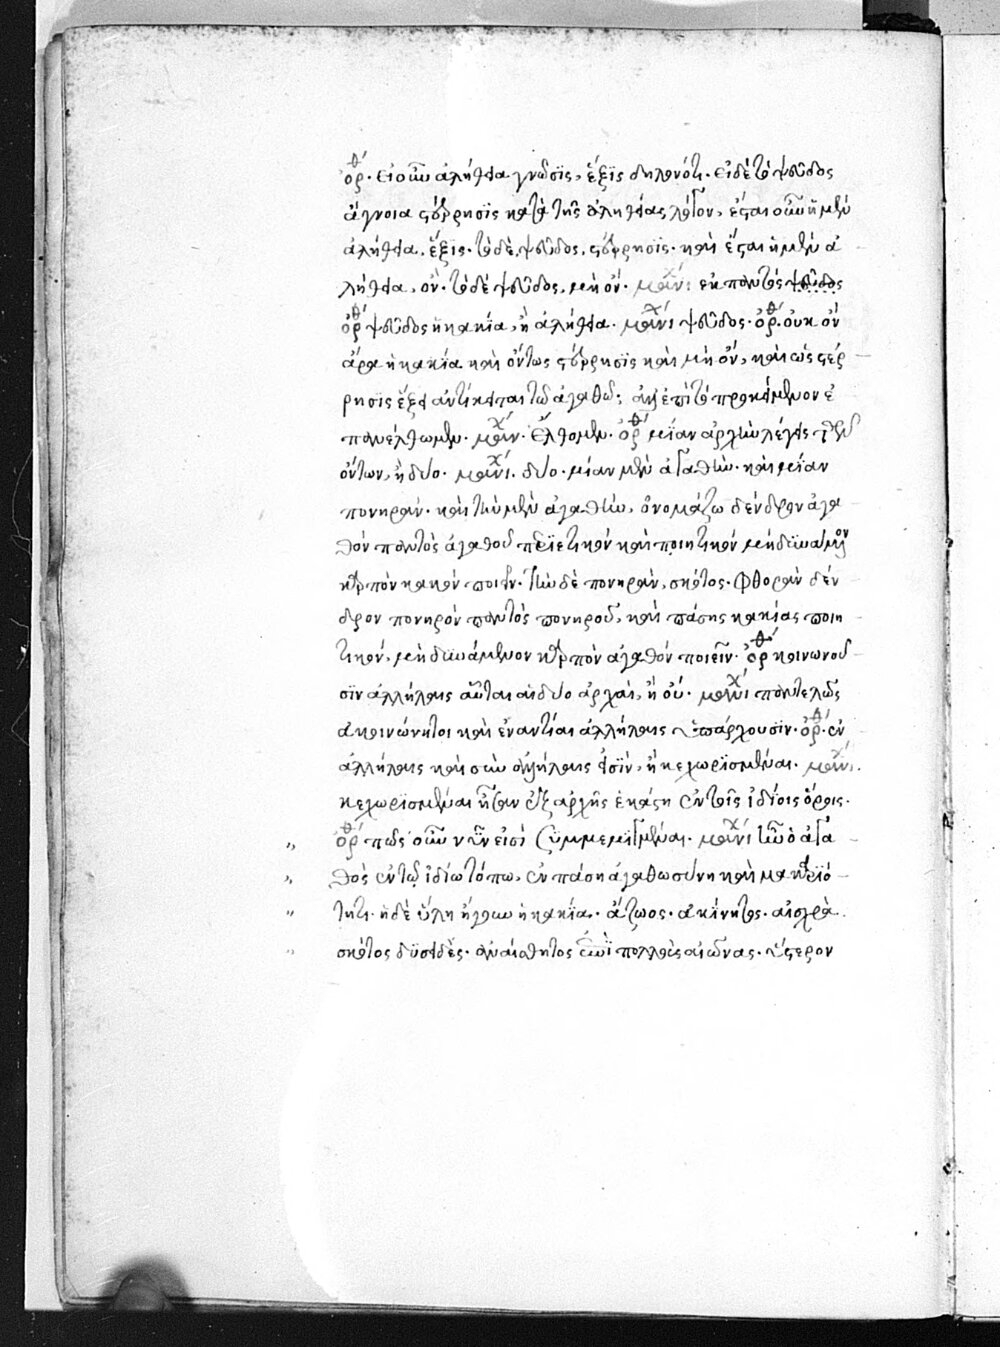 ὀρθ. εἰ οὖν ἀλήθεια γνῶσϊς, ἕξϊς δηλονότι. εἰ δὲ τὸ ψεῦδος
ἄγνοια στέρησϊς κατὰ τῆς ἀληθείας λέγον, ἔσται οὖν ἡ μὲν
ἀλήθεια, ἕξις. τὸ δὲ ψεῦδος, στέρησϊς. καὶ ἔσται ἡ μὲν ἀ
λήθεια, ὄν. τὸ δὲ ψεῦδος, μὴ ὄν. μανιχ. ἐκ παντὸς ψεῦδος
ὀρθ ψεῦδος ἡ κακία, ἢ ἀλήθεια. μανιχ ψεῦδος. ὀρθ. οὐκ ὂν
ἄρα ἡ κακία καὶ ὄντως στέρησϊς καὶ μὴ ὄν, καὶ ὡς στέρ
ρησις ἕξει ἀντίκειται τῷ ἀγαθῷ; ἀλλ' ἐπὶ τὸ προκείμενον ἐ
πανέλθωμεν. μανιχ. ἔλθομεν. ὀρθ μίαν ἀρχὴν λέγεις τῶν
ὄντων, ἢ δύο. μανιχ. δύο. μίαν μὲν ἀγαθὴν. καὶ μίαν
πονηράν. καὶ τὴν μὲν ἀγαθὴν, ὀνομάζω δένδρον ἀγα
θὸν παντὸς ἀγαθοῦ περιεκτικὸν καὶ ποιητικόν μὴ δϋνάμενον
καρπὸν κακὸν ποιεῖν. τὴν δὲ πονηρὰν, σκότος. φθορὰν δέν
δρον πονηρὸν παντὸς πονηροῦ, καὶ πάσης κακίας ποιη
τικόν, μὴ δϋνάμενον καρπὸν ἀγαθὸν ποιεῖν. ὀρθ κοινωνοῦ
σϊν ἀλλήλαις αὗται αἱ δύο ἀρχαὶ, ἢ οὔ. μανιχ παντελῶς
ἀκοινώνητοι καὶ ἐναντίαι ἀλλήλαις ὑπάρχουσϊν. ὀρθ. ἐν
ἀλλήλαις καὶ σὺν ἀλλήλαις εἰσϊν, ἢ κεχωρϊσμέναι. μανιχ.
κεχωρϊσμέναι ἦσαν ἐξ ἀρχῆς ἑκάστη ἐν τοῖς ἰδίοις ὅροις.
ὀρθ πῶς οὖν νῦν εἰσὶ συμμεμϊγμέναι. μανιχ ἦν ὁ ἀγα
θὸς ἐν τῷ ἰδίω τόπω, ἐν πάση ἀγαθωσύνη καὶ μακαριό
τητι. ἡ δὲ ὕλη ἤγουν ἡ κακία. ἄζωος. ἀκίνητος. αἰσχρὰ.
σκότος δϋσειδὲς. ἀναίσθητος ἐπὶ πολλοὺς αἰῶνας. ὕστερον